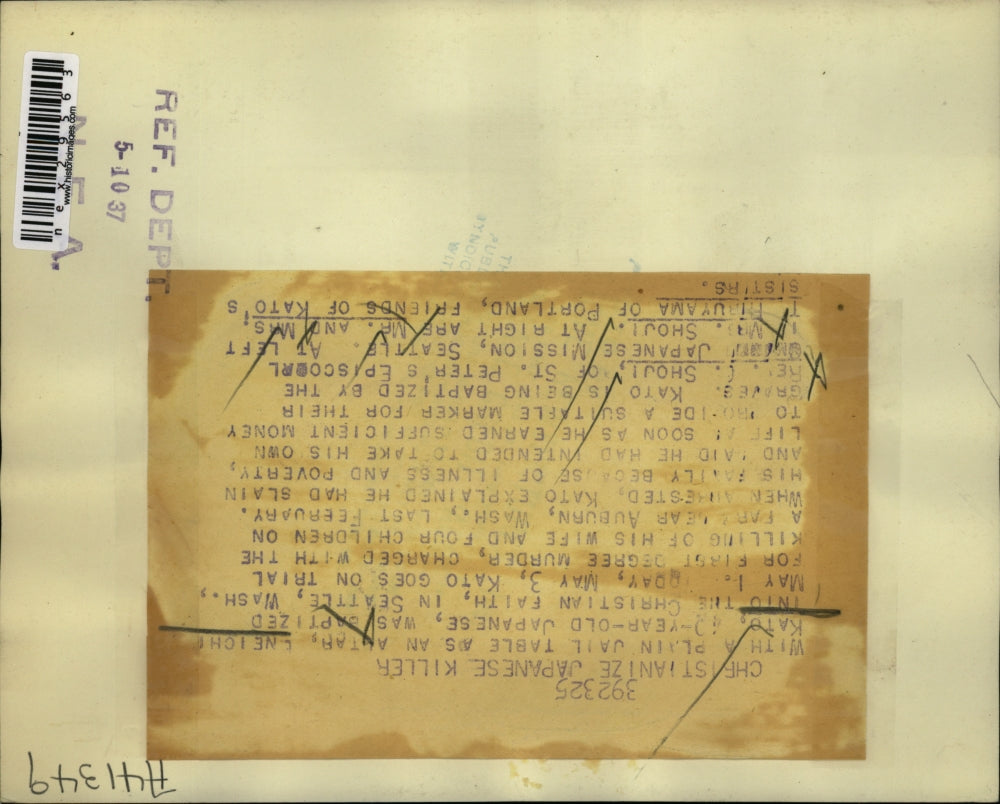 392325
CHRISTIANIZE JAPANESE KILLER
WITH A PLAIN JAIL TABLE AS AN ALTAR,
KATO, 42-YEAR-OLD JAPANESE, WAS BAPTIZED
INTO THE CHRISTIAN FAITH, IN SEATTLE, WASH.,
MAY 1. MAY 3, KATO GOES ON TRIAL
FOR FIRST DEGREE MURDER, CHARGED WITH THE
KILLING OF HIS WIFE AND FOUR CHILDREN ON
A FARM NEAR AUBURN, WASH., LAST FEBRUARY.
WHEN ARRESTED, KATO EXPLAINED HE HAD SLAIN
HIS FAMILY BECAUSE OF ILLNESS AND POVERTY,
AND SAID HE HAD INTENDED TO TAKE HIS OWN
LIFE AS SOON AS HE EARNED SUFFICIENT MONEY
TO PROVIDE A SUITABLE MARKER FOR THEIR
GRAVES. KATO IS BEING BAPTIZED BY THE
REV. SHOJI, OF ST. PETER'S EPISCOPAL
JAPANESE MISSION, SEATTLE. AT LEFT
MRS. SHOJI. AT RIGHT ARE MR. AND MRS.
T. HIRUYAMA OF PORTLAND, FRIENDS OF KATO'S
SISTERS.
REF. DEPT.
5-10 37
N.E.A.
nex29563
www.historicimages.com
A41349